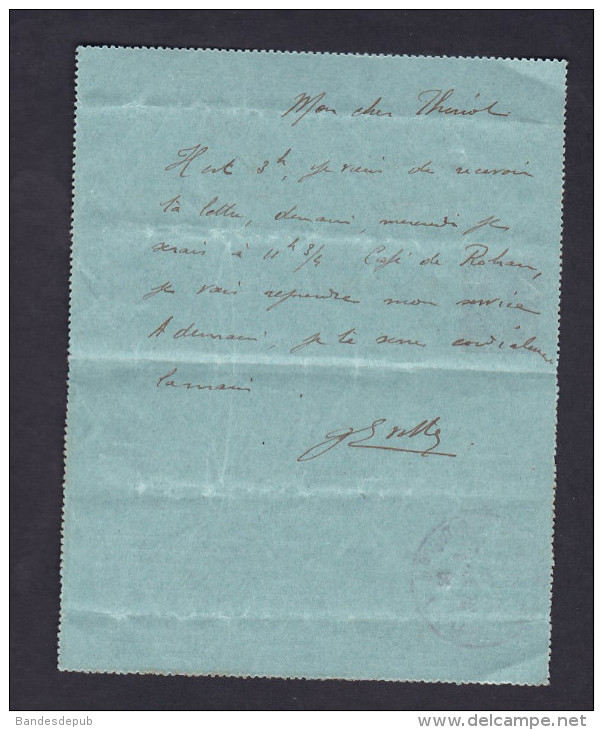 Mon cher Thiriot
Il est 3h, je viens de recevoir
ta lettre, demain, mercredi je
serais à 11h 3/4 Café de Rohan,
je vais reprendre mon service
A demain, je te serre cordialement
la main.
Bandesdepub
www.delcampe.net